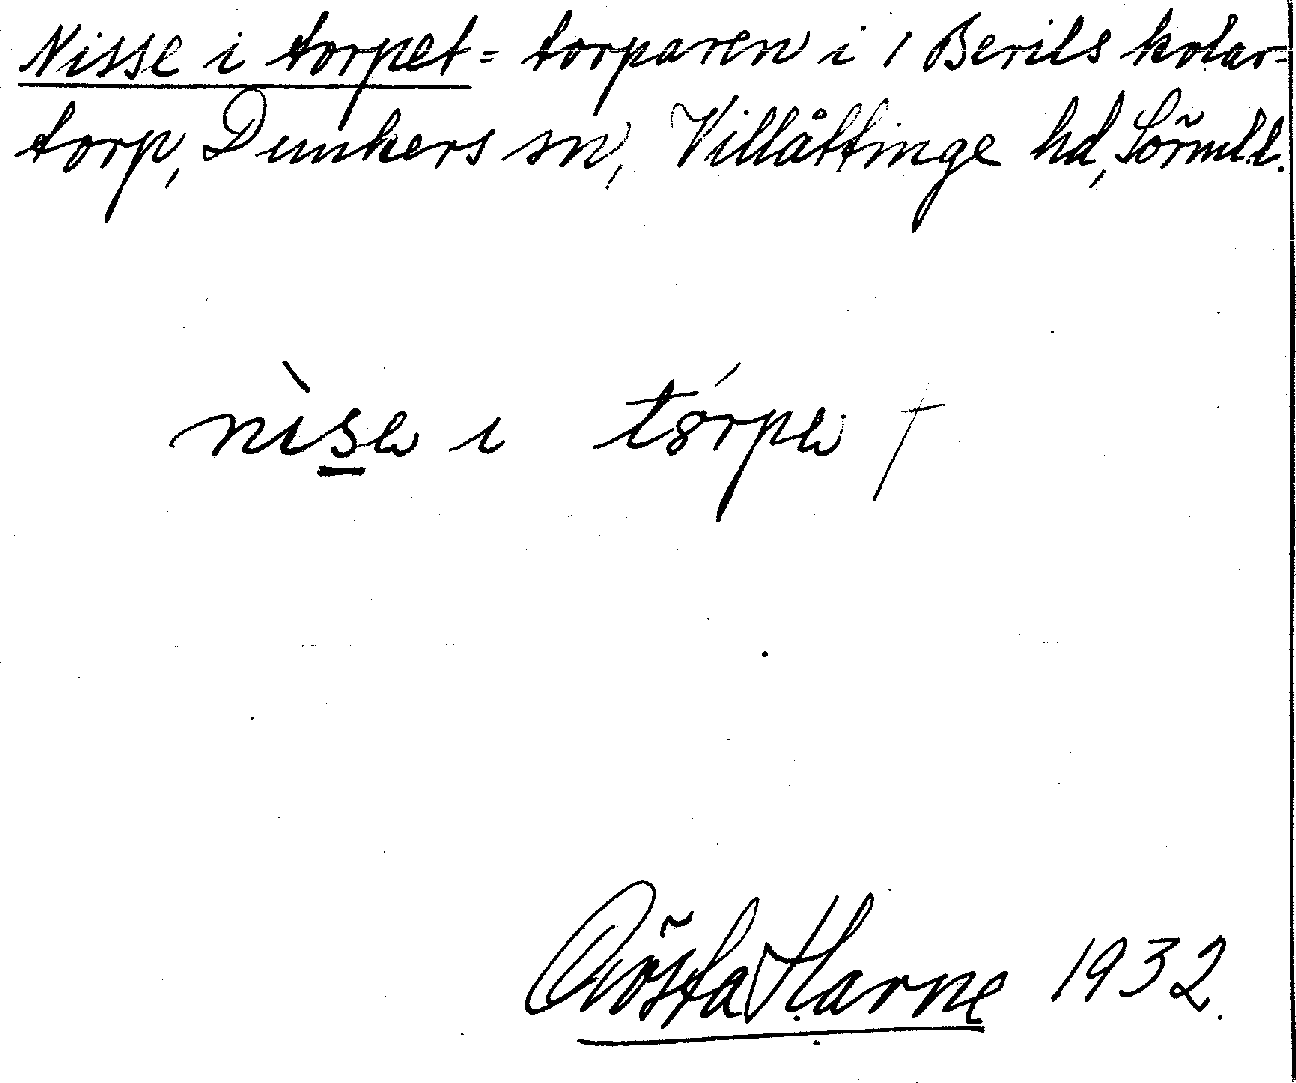 Nisse i torpet = torparen i 1 Berils kolar-
torp, Dunkers sn, Villåttinge hd, Sörmld.
nìse i tórpe †
Gösta Harne 1932.